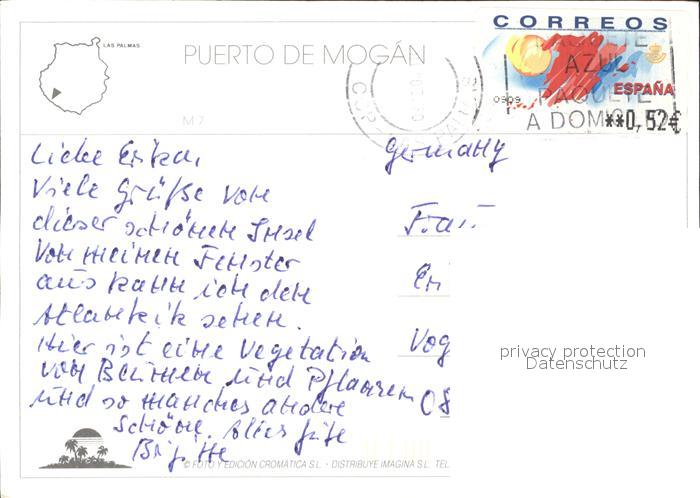 LAS PALMAS
PUERTO DE MOGÁN
M 7
CORREOS
PAQUETE
AZUL
PAQUETE
A DOMICI
ESPAÑA
0909
**0,52€
Liebe Erika,
Viele Grüße von
dieser schönen Insel
Von meinen Fenster
aus kann ich den
Atlantik sehen.
Hier ist eine Vegetation
von Blumen und Pflanzen
und so manches andere
Schöne. Alles gute
Brigitte
Germany
Frau
Er
Vog
08
privacy protection
Datenschutz
© FOTO Y EDICIÓN CROMÁTICA S.L. - DISTRIBUYE IMAGINA S.L. TEL